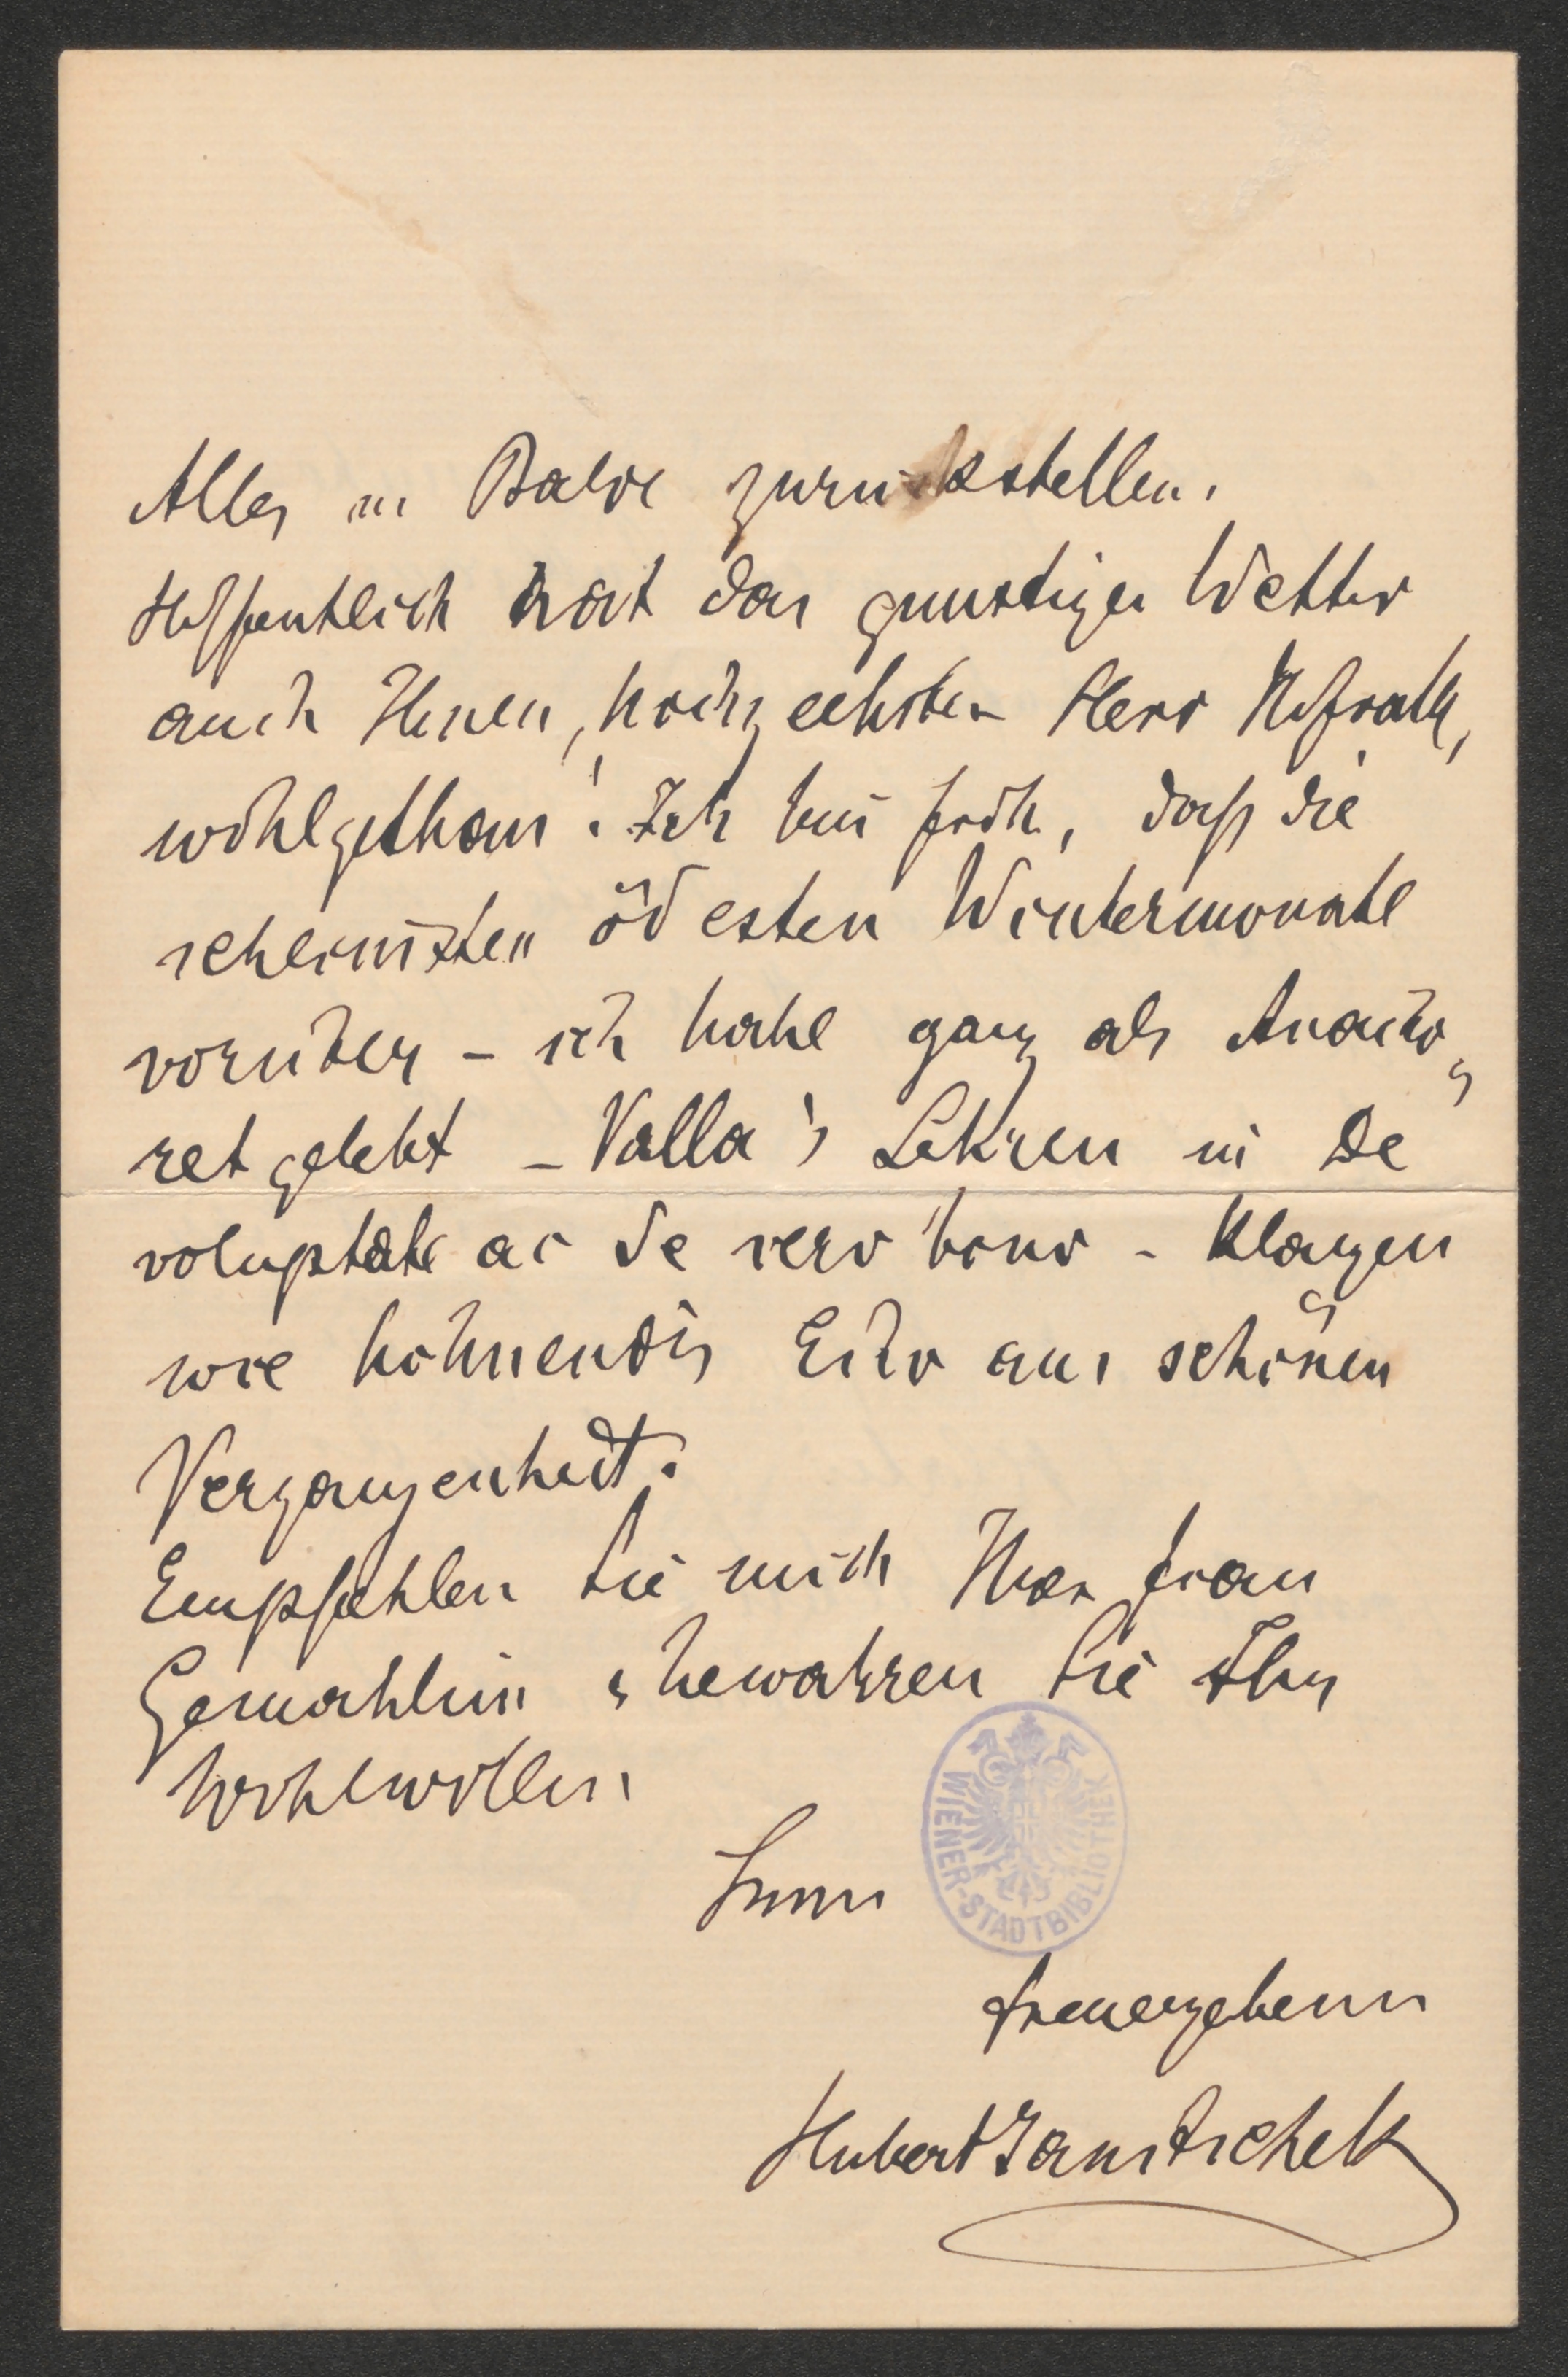 Alles in Balde zurückstellen.
Hoffentlich hat das günstige Wetter
auch Ihnen, hochgeehrter Herr Hofrath,
wohlgethan! Ich bin froh, daß die
schlimmsten ödesten Wintermonate
vorüber – ich habe ganz als Anacho„
ret gelebt – Valla's Lehren in De
voluptate ac de vero bono – klangen
wie höhnendes Echo aus schönen
Vergangenheit.
Empfehlen Sie mich Ihrer Frau
Gemahlin & bewahren Sie Ihr
Wohlwollen
Ihrem
treuergebenen
Hubert Janitschek
WIENER-STADTBIBLIOTHEK